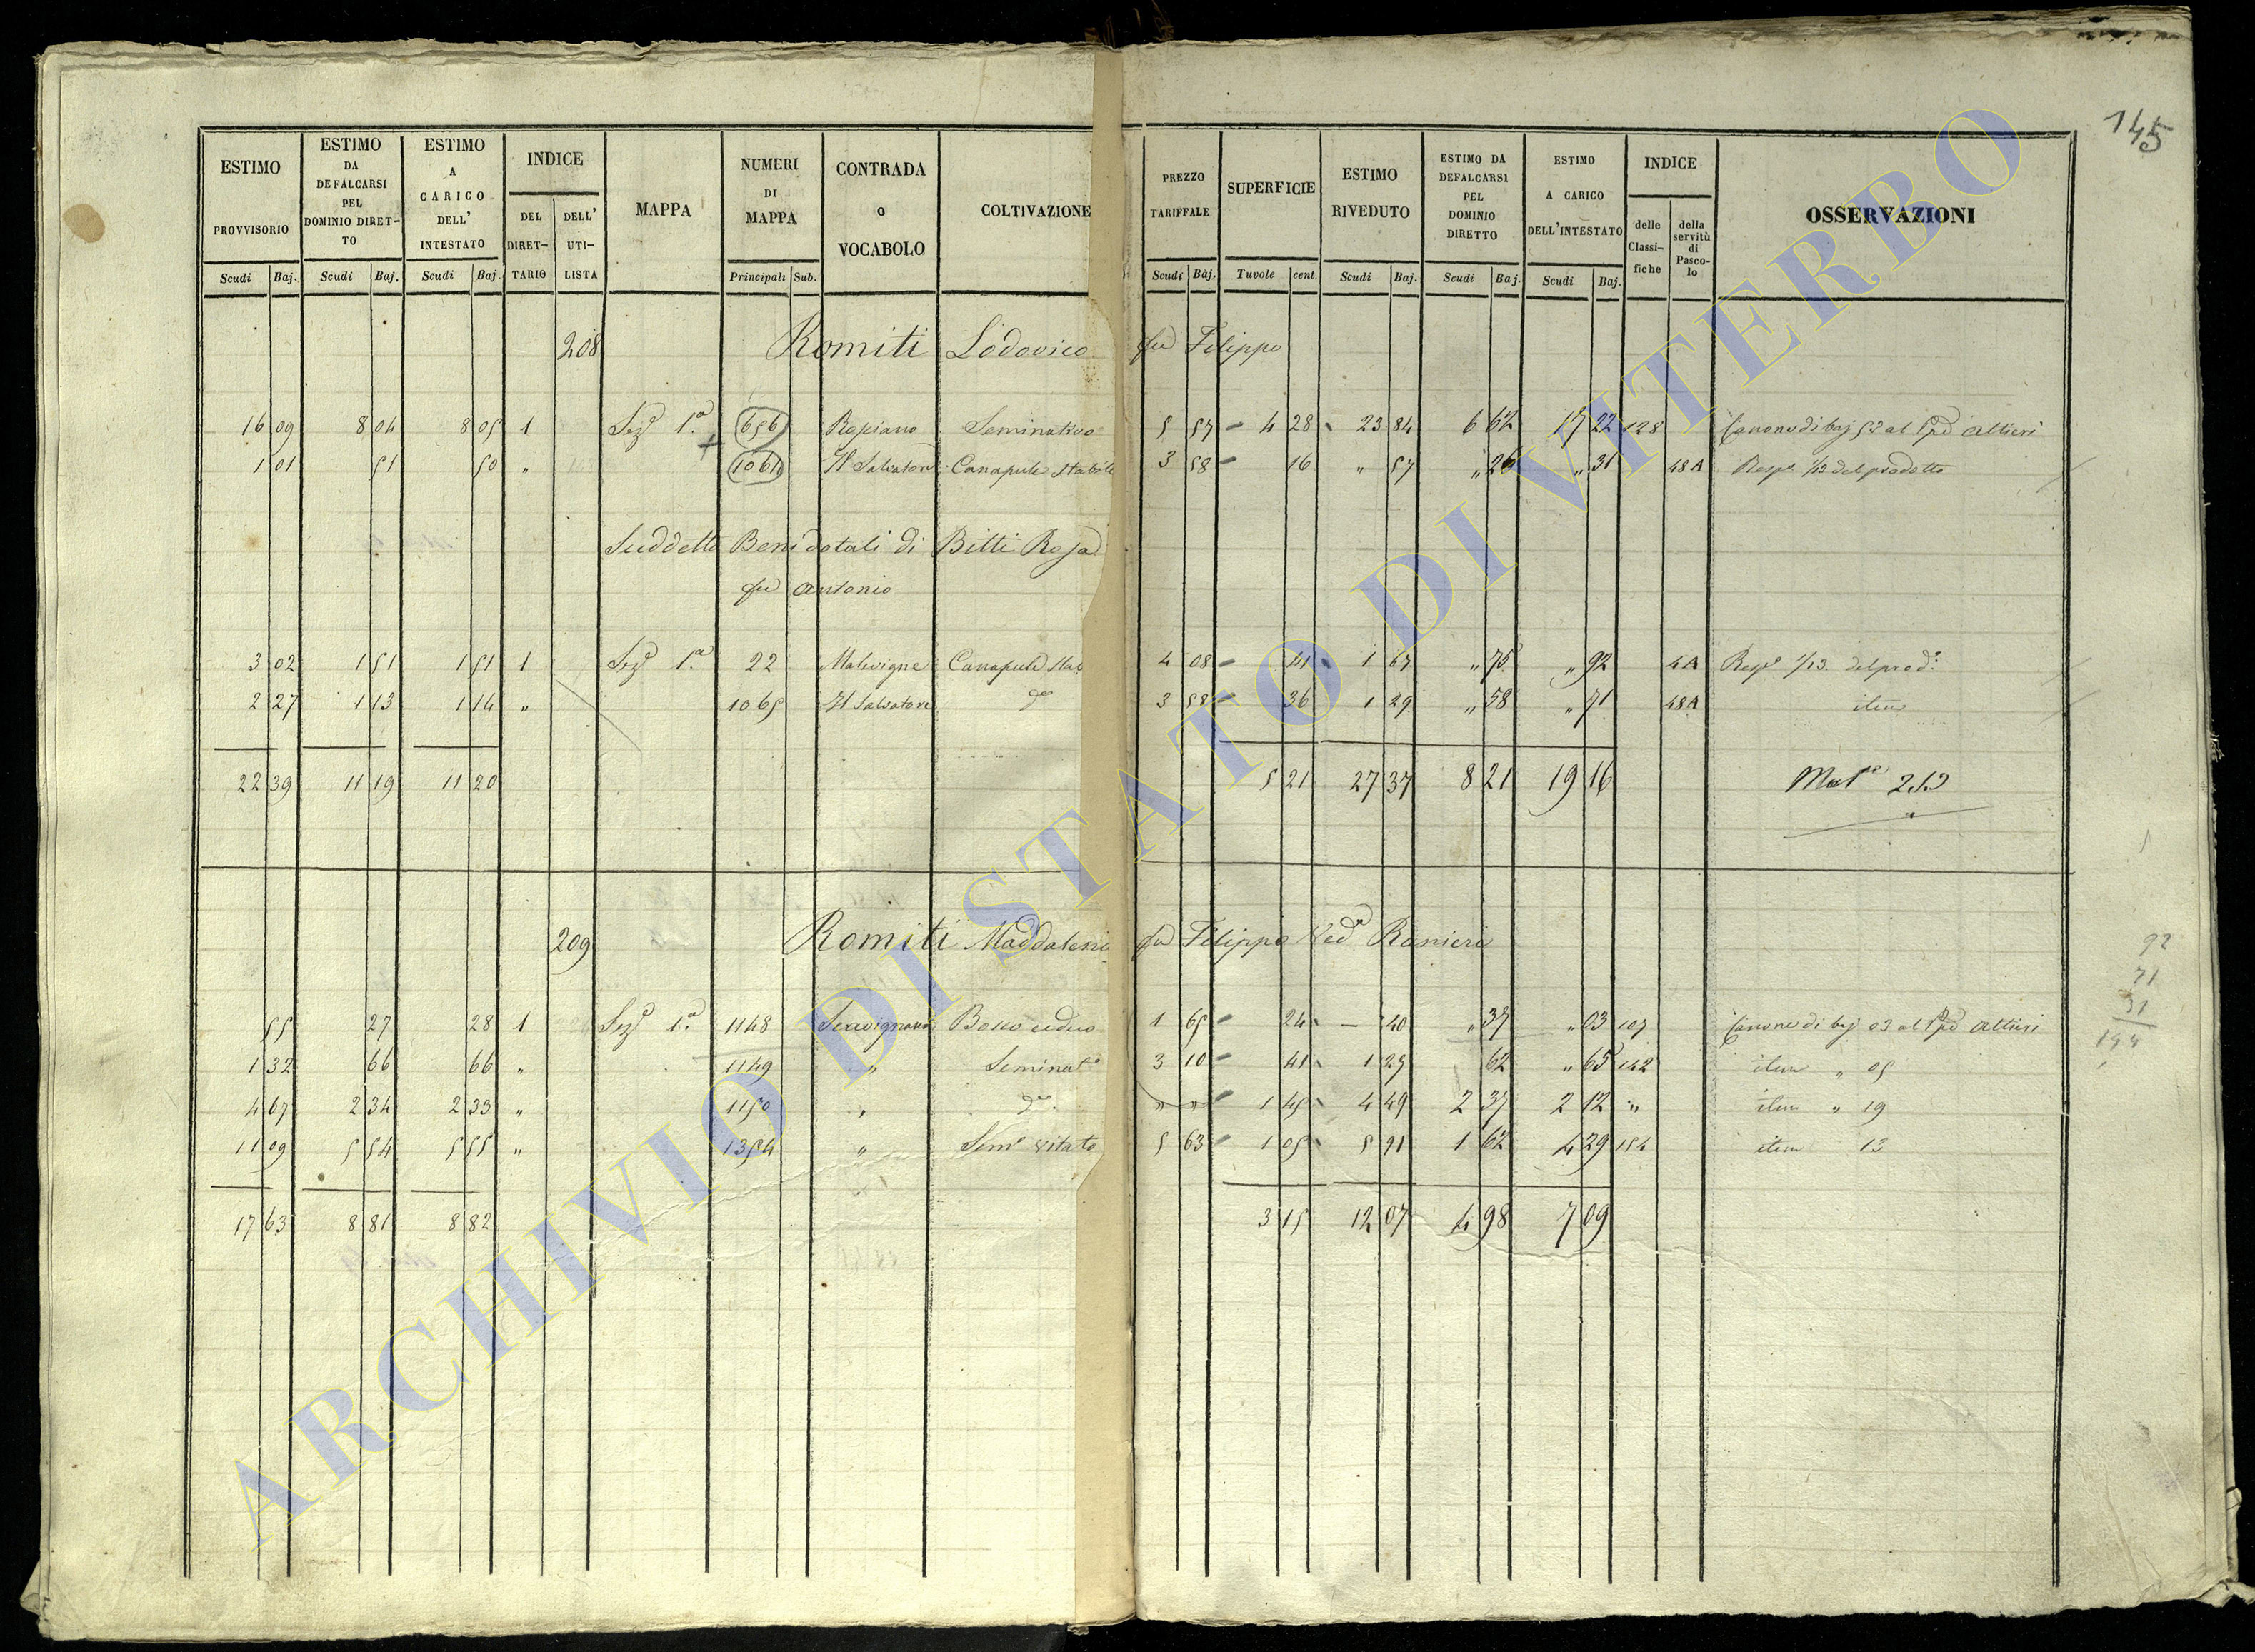 145
ESTIMO PROVVISORIO Scudi Baj.
ESTIMO DA DEFALCARSI PEL DOMINIO DIRETTO Scudi Baj.
ESTIMO A CARICO DELL' INTESTATO Scudi Baj.
INDICE DEL DIRETTARIO DELL' UTILISTA
MAPPA
NUMERI DI MAPPA Principali Sub.
CONTRADA O VOCABOLO
COLTIVAZIONE
PREZZO TARIFFALE Scudi Baj.
SUPERFICIE Tavole cent.
ESTIMO RIVEDUTO Scudi Baj.
ESTIMO DA DEFALCARSI PEL DOMINIO DIRETTO Scudi Baj.
ESTIMO A CARICO DELL'INTESTATO Scudi Baj.
INDICE delle Classifiche della servitù di Pascolo
OSSERVAZIONI
208 Romiti Lodovico fu Filippo
16 09 8 04 8 05 1 Seze 1.a 656 Rapiano Seminativo 5 57 4 28 23 84 6 62 17 22 128 Canone di baj 52 al Ppe Altieri
1 01 51 50 " 1064 Il Salvatore Canapule Stabile 3 58 16 " 57 " 26 " 31 48A Respe 1/13 del prodotto
Suddetto Beni dotali di Bitti Rosa
fu Antonio
3 02 1 51 1 51 1 Seze 1.a 22 Malevigne Canapule Stab 4 08 41 1 67 " 75 " 92 4A Respe 1/13. del prod.o
2 27 1 13 1 14 " 1065 Il Salvatore do 3 58 36 1 29 " 58 " 71 48A item
22 39 11 19 11 20 5 21 27 37 8 21 19 16
209 Romiti Maddalena fu Filippo Veda Ranieri
55 27 28 1 Seze 1.a 1148 Scavignano Bosco ceduo 1 65 24 — 40 " 37 " 03 107 Canone di baj 03 al Ppe Altieri
1 32 66 66 " 1149 " Seminato 3 10 41 1 27 62 " 65 142 item " 05
4 67 2 34 2 33 " 1150 " do. " " 1 45 4 49 2 37 2 12 " item " 19
11 09 5 54 5 55 " 1354 " Seme vitato 5 63 1 05 5 91 1 62 4 29 154 item 13
17 63 8 81 8 82 3 15 12 07 4 98 7 09
92
71
31
194
ARCHIVIO DI STATO DI VITERBO